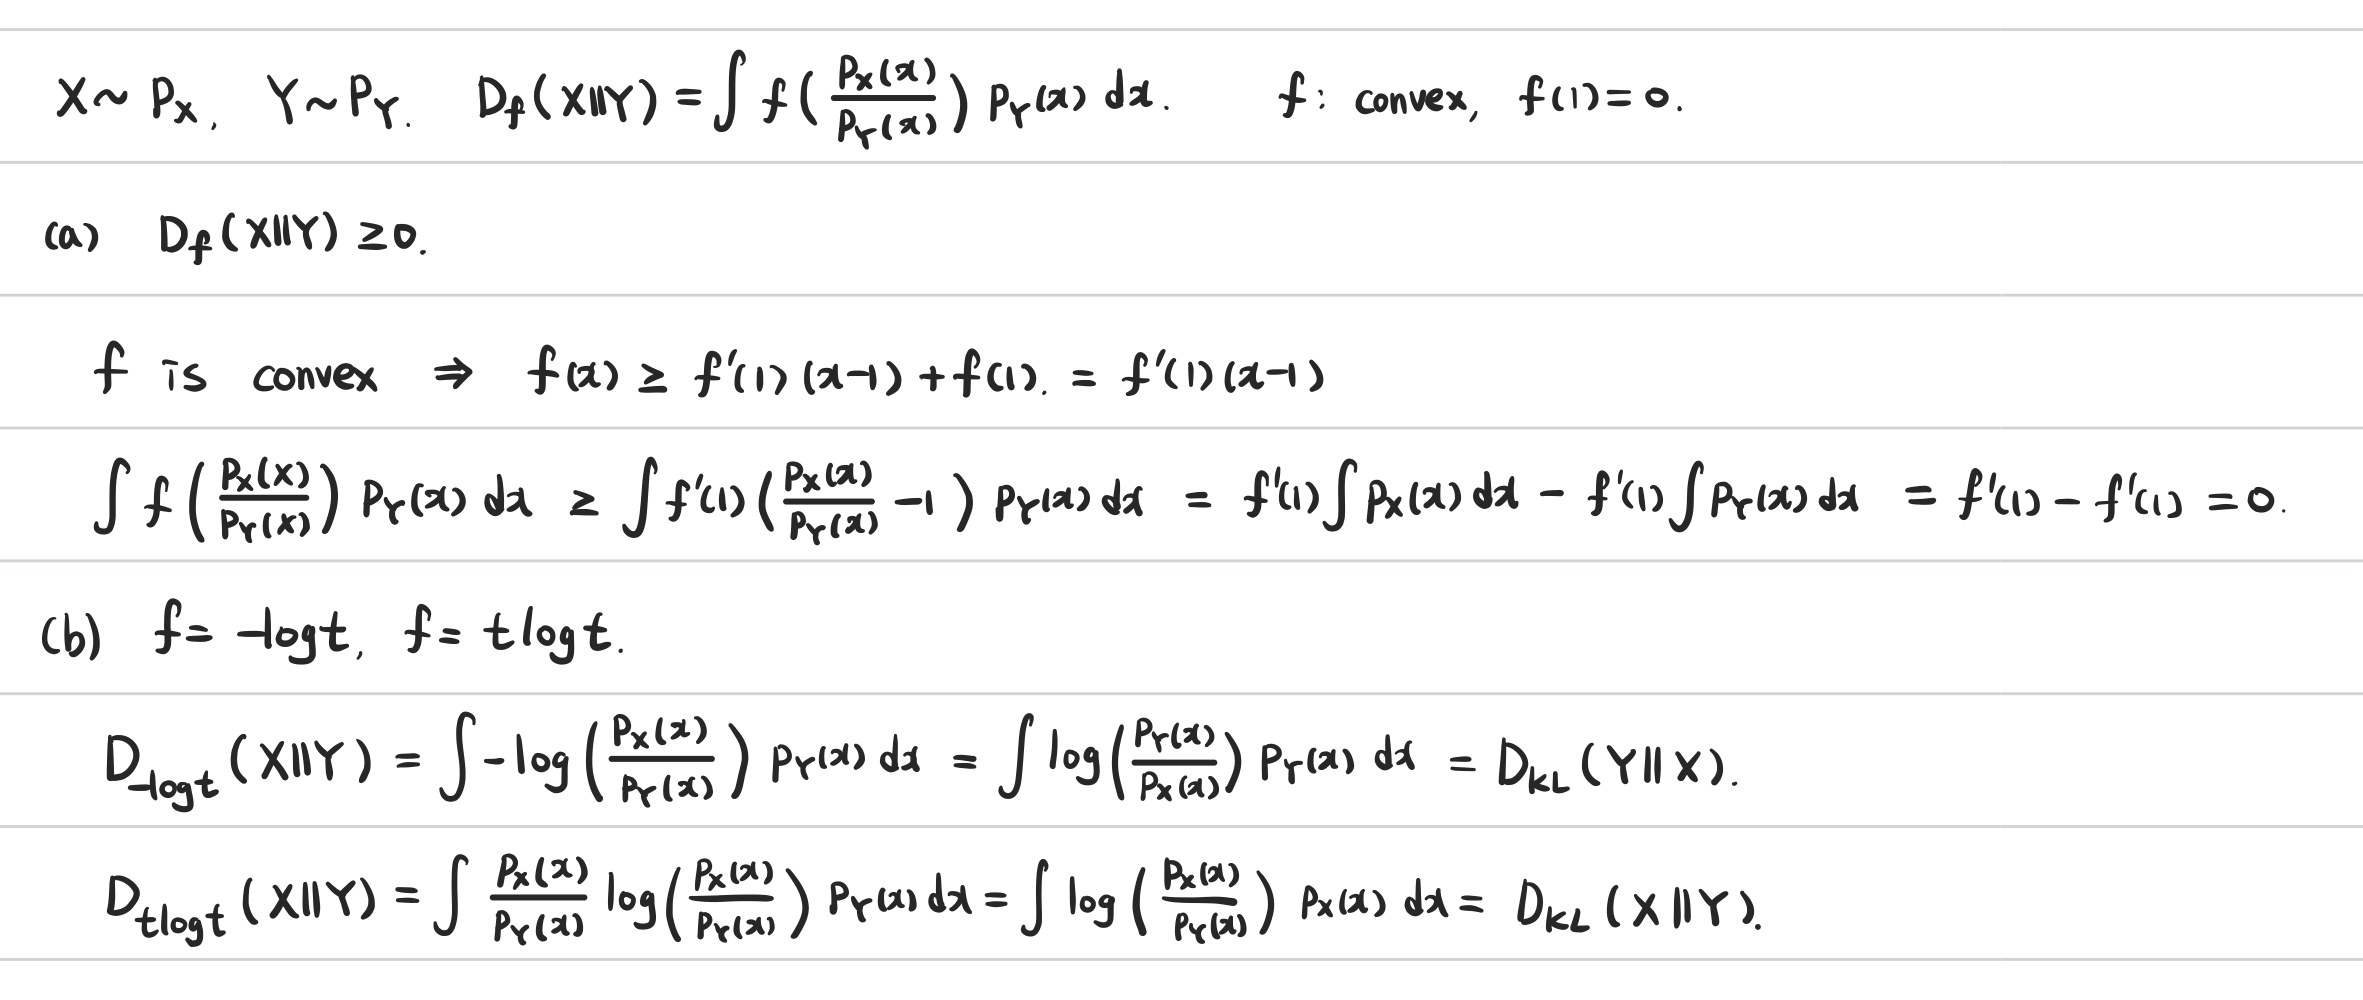 X ~ P_X, Y ~ P_Y. D_f(X||Y) = ∫ f(p_X(x)/p_Y(x)) p_Y(x) dx. f: convex, f(1) = 0.
(a) D_f(X||Y) ≥ 0.
f is convex ⇒ f(x) ≥ f'(1)(x-1) + f(1). = f'(1)(x-1)
∫ f(p_X(x)/p_Y(x)) p_Y(x) dx ≥ ∫ f'(1)(p_X(x)/p_Y(x) - 1) p_Y(x) dx = f'(1) ∫ p_X(x) dx - f'(1) ∫ p_Y(x) dx = f'(1) - f'(1) = 0.
(b) f = -log t, f = t log t.
D_{-log t}(X||Y) = ∫ -log(p_X(x)/p_Y(x)) p_Y(x) dx = ∫ log(p_Y(x)/p_X(x)) p_Y(x) dx = D_KL(Y||X).
D_{t log t}(X||Y) = ∫ p_X(x)/p_Y(x) log(p_X(x)/p_Y(x)) p_Y(x) dx = ∫ log(p_X(x)/p_Y(x)) p_X(x) dx = D_KL(X||Y).